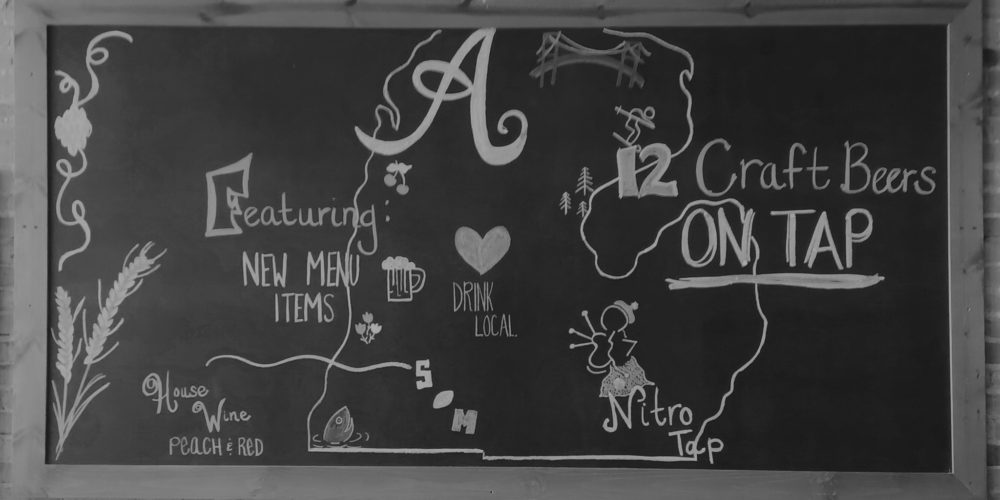 A
Featuring:
NEW MENU
ITEMS
12 Craft Beers
ON TAP
DRINK
LOCAL.
S M
House
Wine
PEACH & RED
Nitro
Tap